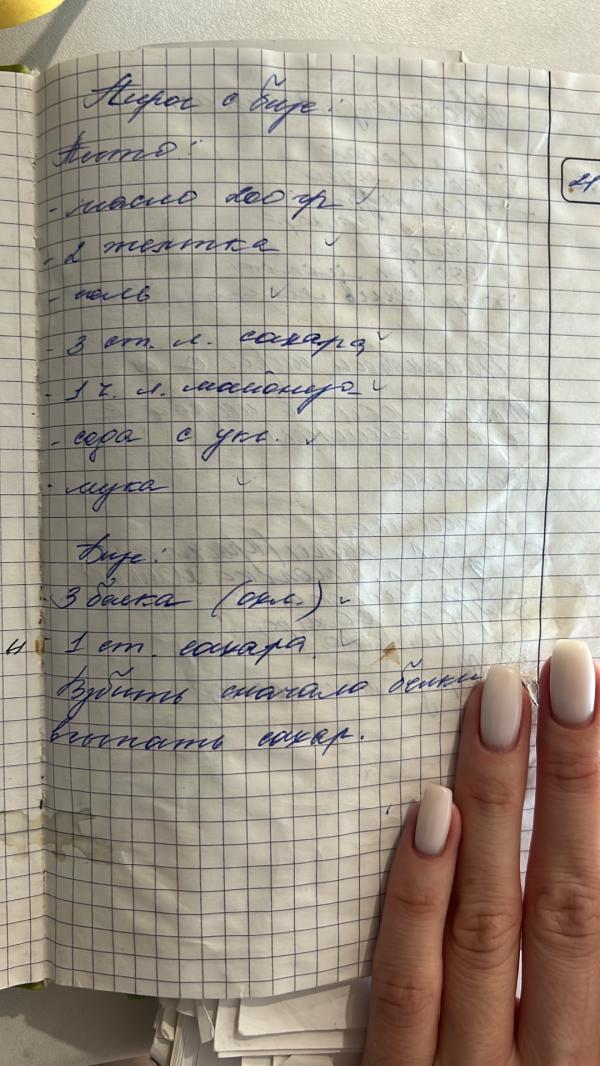 Пирог с безе:
Тесто:
- масло 200 гр
- 2 желтка
- соль
- 3 ст. л. сахара
- 1 ч. л. майонеза
- сода с укс.
- мука
Безе:
3 белка (охл.)
- 1 ст. сахара.
Взбить сначала белки
всыпать сахар.